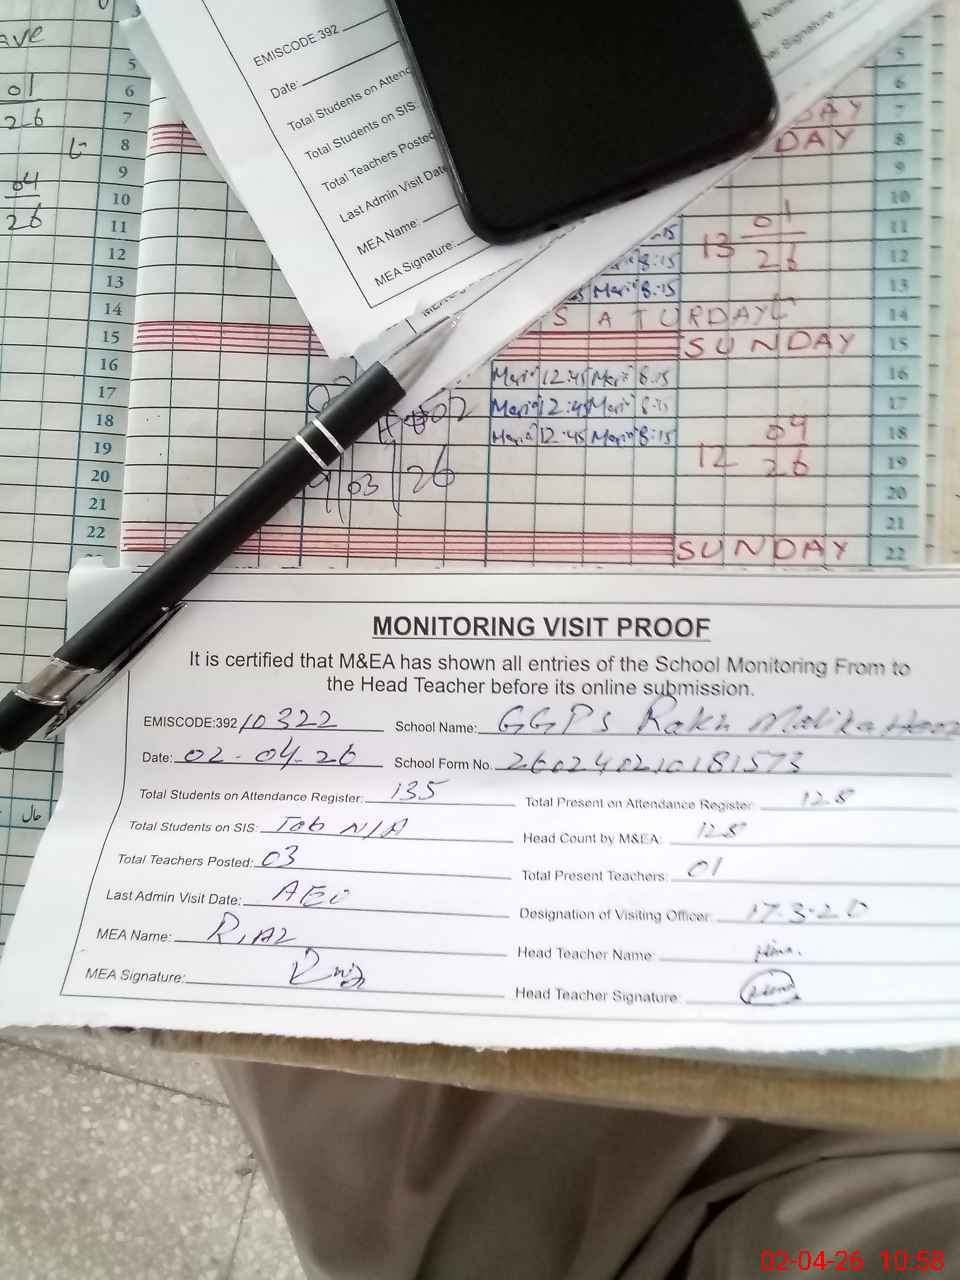 AVE
01
26
04
26
EMISCODE:392
Date:
Total Students on Attend
Total Students on SIS:
Total Teachers Posted
Last Admin Visit Date
MEA Name:
MEA Signature:
er Signature:
5
6
7
8
9
10
11
12
13
14
15
16
17
18
19
20
21
22
DAY
DAY
8:15
8:15
13 01
26
SATURDAY
SUNDAY
12:45 8:15
12:45
12:45 8:15
12 04
26
03 26
SUNDAY
5
6
7
8
9
10
11
12
13
14
15
16
17
18
19
20
21
22
حال
MONITORING VISIT PROOF
It is certified that M&EA has shown all entries of the School Monitoring From to
the Head Teacher before its online submission.
EMISCODE:392 10322 School Name: GGPS Rakh
Date: 02-04-26 School Form No. 260240210181573
Total Students on Attendance Register: 135 Total Present on Attendance Register: 128
Total Students on SIS: Tab N/A Head Count by M&EA: 128
Total Teachers Posted: 03 Total Present Teachers: 01
Last Admin Visit Date: AEO Designation of Visiting Officer: 17.3.26
MEA Name: Riaz Head Teacher Name:
MEA Signature: Head Teacher Signature:
02-04-26 10:58